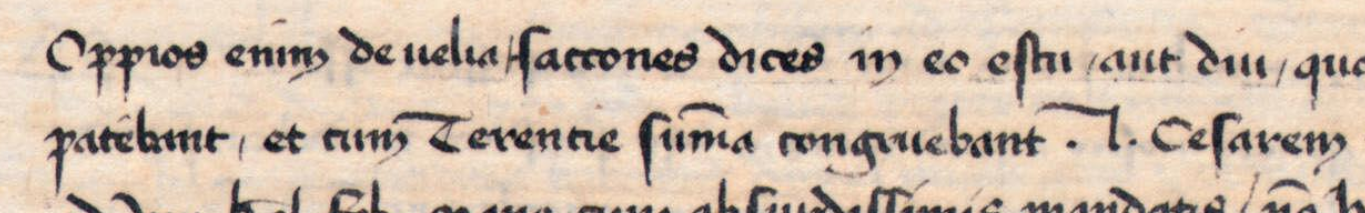 Oppios enim de uelia / saccones dices in eo estu / aut diu / quo
patebant / et cum Terentie sum̄a congruebant . l. Cesarem
absurdissimis mandatis /